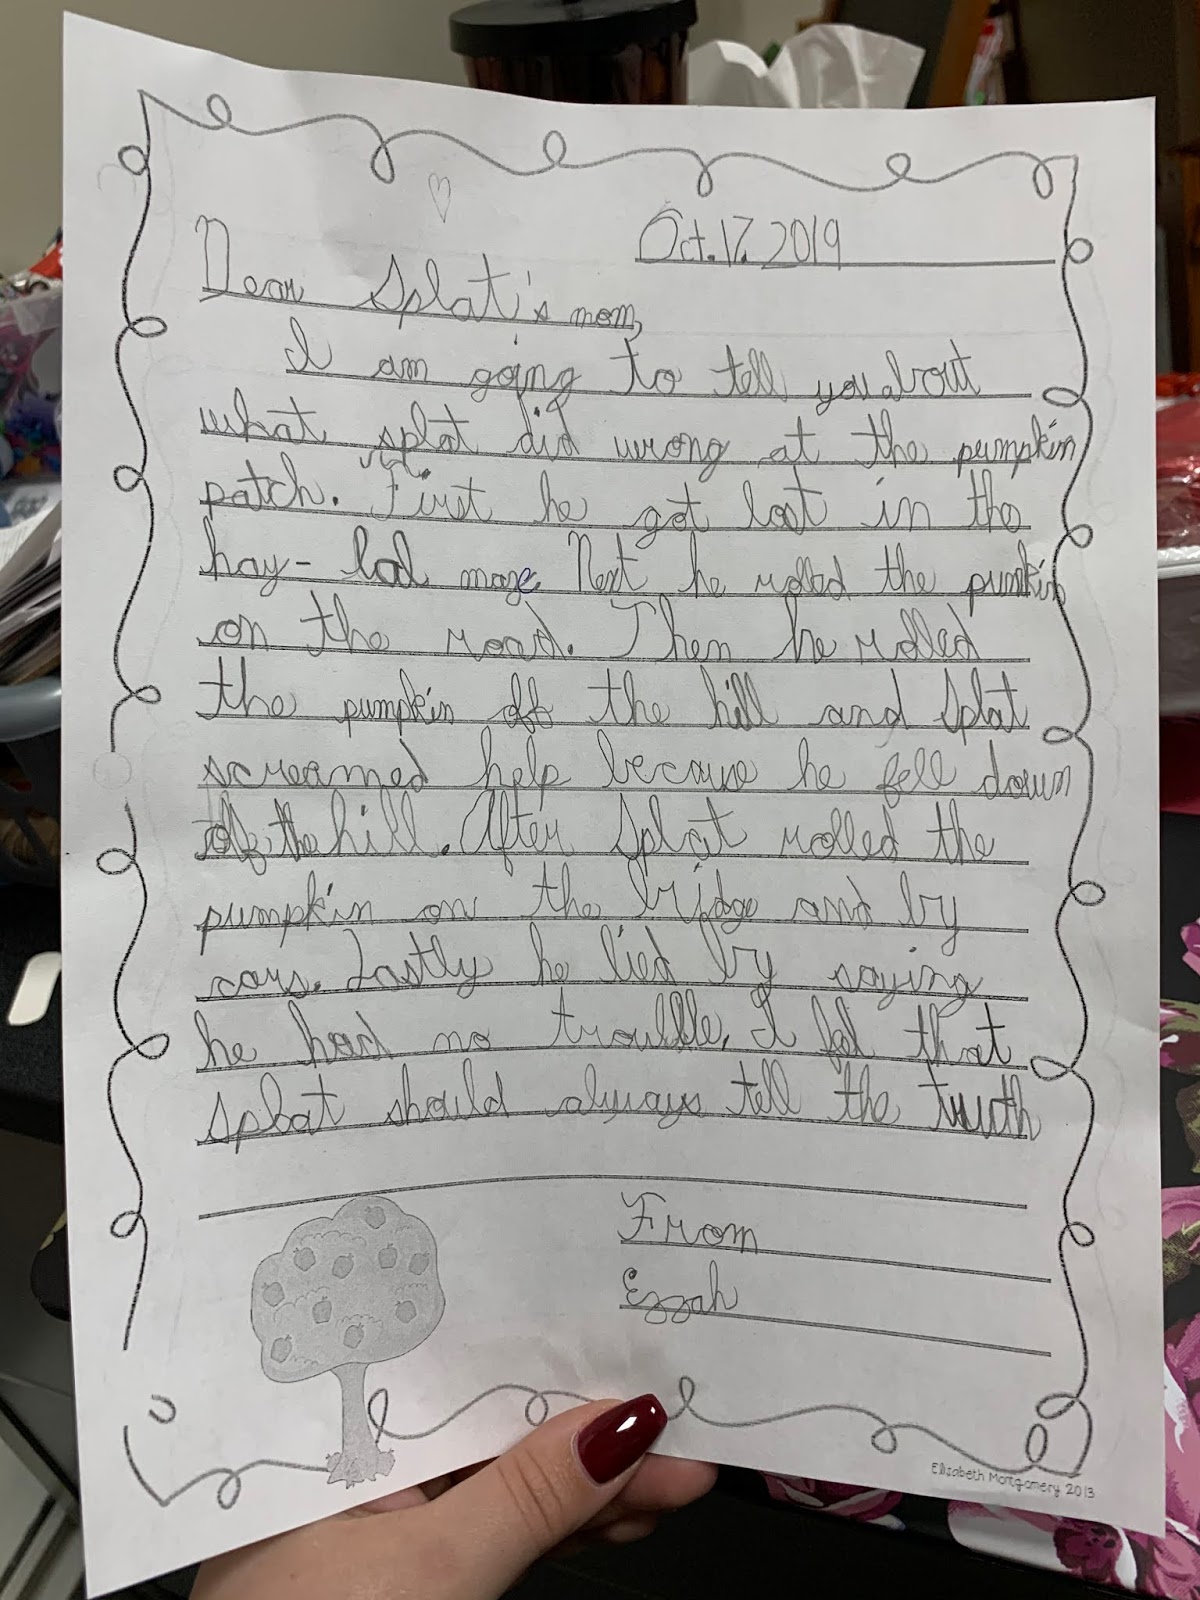 Oct. 17. 2019
Dear Splat's mom,
I am going to tell you about
what splat did wrong at the pumpkin
patch. First he got lost in the
hay- bal maze. Next he rolled the pumpkin
on the road. Then he rolled
the pumpkin off the hill and Splat
screamed help because he fell down
of the hill. After Splat rolled the
pumpkin on the bridge and by
cars. Lastly he lied by saying
he had no trouble. I fel that
Splat should always tell the truth
From
Ezzah
Elisabeth Montgomery 2013